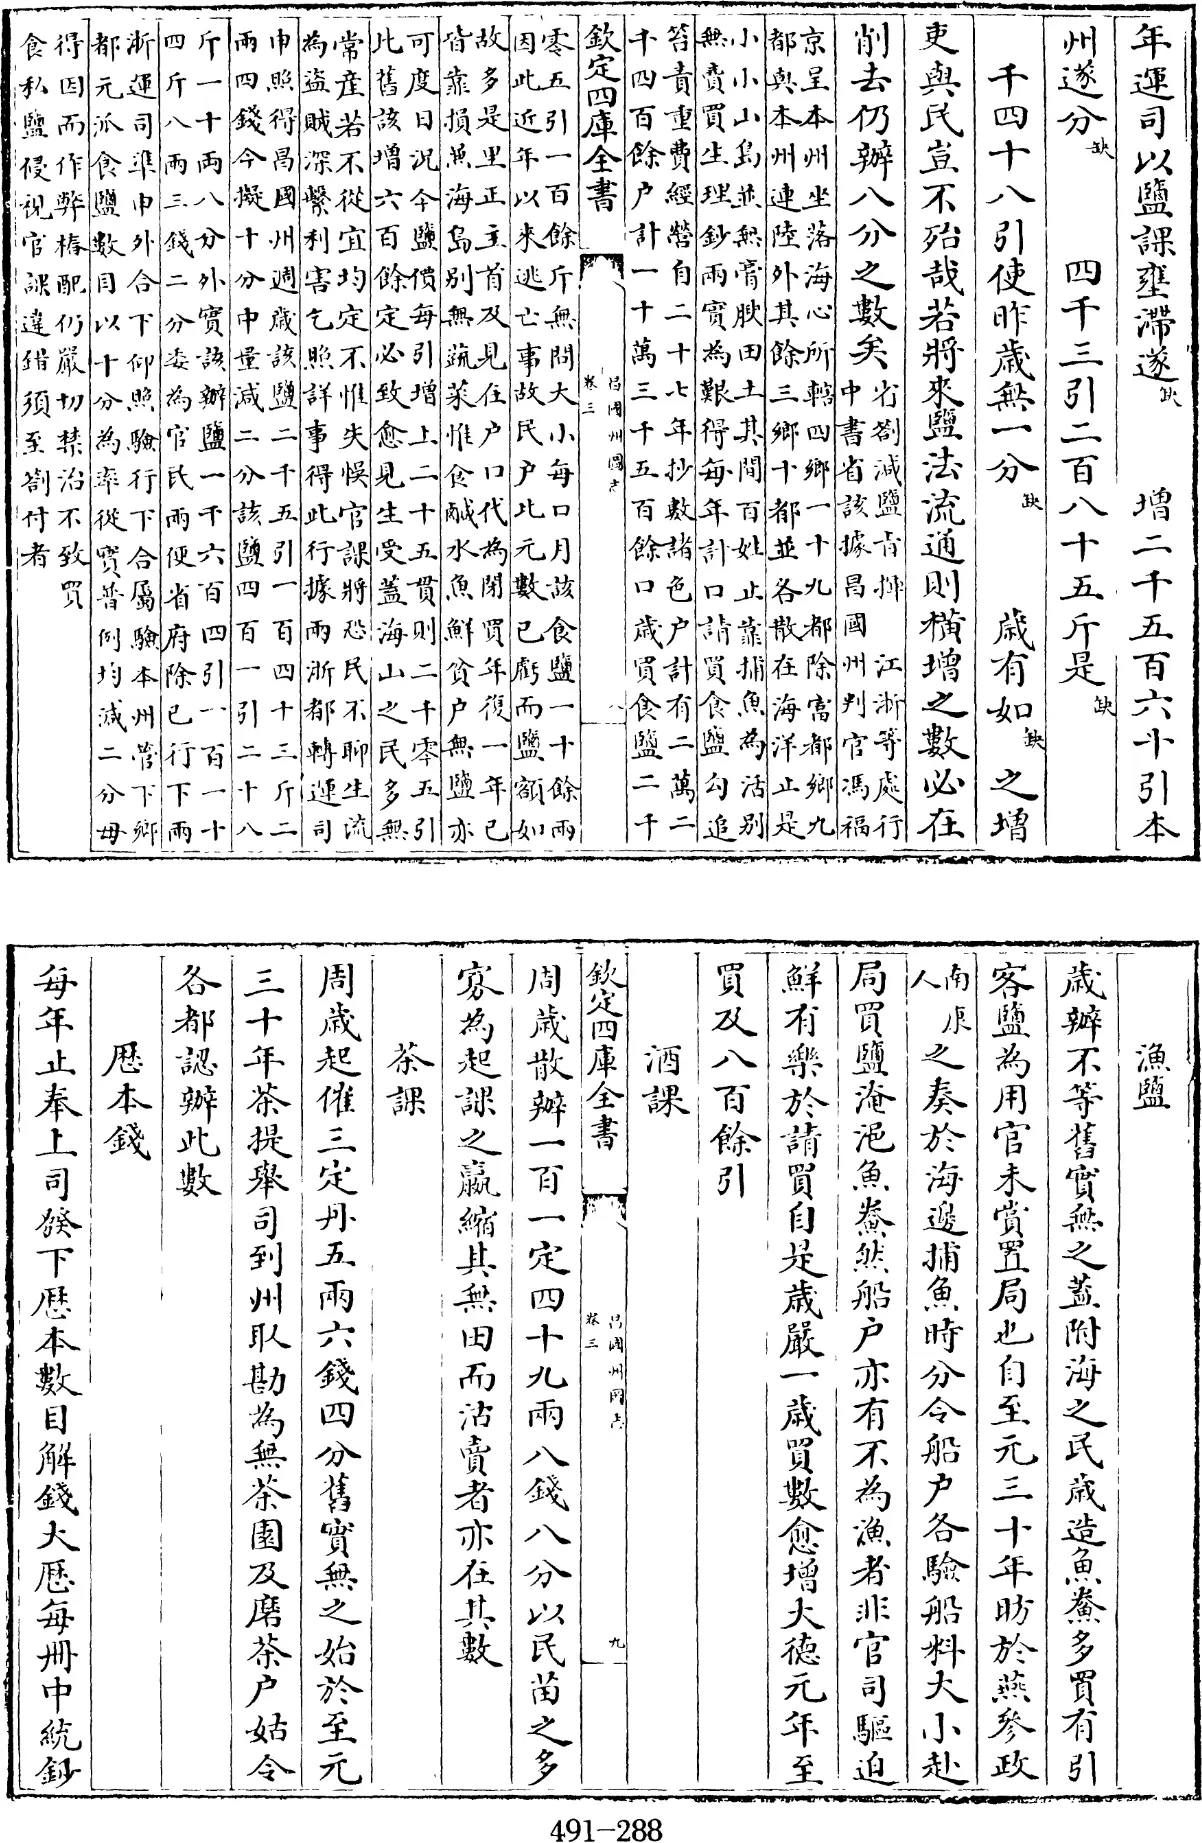 年運司以鹽課壅滯遂缺　增二千五百六十引本
州遂分缺　四千三引二百八十五斤是缺
千四十八引使昨歲無一分缺　歲有如缺　之增
吏與民豈不殆哉若將來鹽法流通則橫增之數必在
削去仍辦八分之數矣省劄減鹽省揮　江浙等處行
中書省該據昌國州判官馮福
京呈本州坐落海心所轄四鄉一十九都除富都鄉九
都與本州連陸外其餘三鄉十都並各散在海洋止是
小小山島並無膏腴田土其間百姓止靠捕魚為活別
無賣買生理鈔兩實為艱得每年計口請買食鹽勾追
笞責重費經營自二十七年抄數諸色户計有二萬二
千四百餘户計一十萬三千五百餘口歲買食鹽二千
欽定四庫全書
昌國州圖志
卷三
八
零五引一百餘斤無問大小每口月該食鹽一十餘兩
因此近年以來逃亡事故民户比元數已虧而鹽額如
故多是里正主首及見在户口代為閉買年復一年已
皆靠損無海島別無蔬菜惟食鹹水魚鮮貧户無鹽亦
可度日況今鹽價每引增上二十五貫則二千零五引
此舊該增六百餘定必致愈見生受蓋海山之民多無
常産若不從宜均定不惟失悮官課將恐民不聊生流
為盜賊深繫利害乞照詳事得此行據兩浙都轉運司
申照得昌國州週歲該鹽二千五引一百四十三斤二
兩四錢今擬十分中量減二分該鹽四百一引二十八
斤一十兩八分外實該辦鹽一千六百四引一百一十
四斤八兩三錢二分委為官民兩便省府除已行下兩
浙運司準申外合下仰照驗行下合屬驗本州管下鄉
都元派食鹽數目以十分為率從實普例均減二分毋
得因而作弊樁配仍嚴切禁治不致買
食私鹽侵視官課違錯須至劄付者
漁鹽
歲辦不等舊實無之蓋附海之民歲造魚鮝多買有引
客鹽為用官未嘗置局也自至元三十年昉於燕參政
南康
人之奏於海邊捕魚時分令船户各驗船料大小赴
局買鹽淹浥魚鮝然船户亦有不為漁者非官司驅迫
鮮有樂於請買自是歲嚴一歲買數愈增大德元年至
買及八百餘引
酒課
欽定四庫全書
昌國州圖志
卷三
九
周歲散辦一百一定四十九兩八錢八分以民苗之多
寡為起課之贏縮其無田而沽賣者亦在其數
茶課
周歲起催三定丹五兩六錢四分舊實無之始於至元
三十年茶提舉司到州取勘為無茶園及磨茶户姑令
各都認辦此數
厯本錢
每年止奉上司發下厯本數目解錢大厯每冊中統鈔
491-288